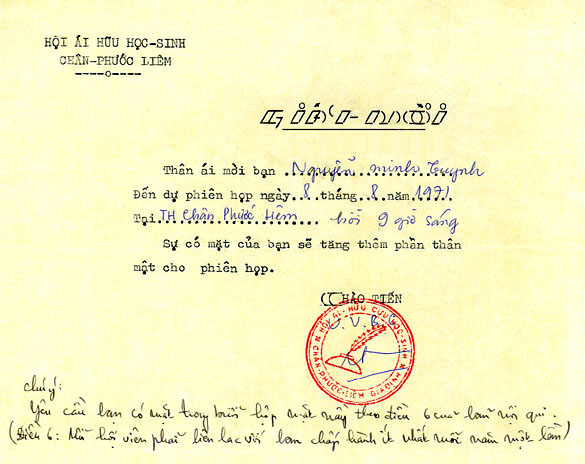 HỘI ÁI HỮU HỌC-SINH
CHÂN-PHƯỚC LIÊM
----o----
GIẤY-MỜI
Thân ái mời bạn Nguyễn minh Quynh
Đến dự phiên họp ngày 8 tháng 8 năm 1971
Tại TH Chân Phước Liêm hồi 9 giờ sáng
Sự có mặt của bạn sẽ tăng thêm phần thân
mật cho phiên họp.
CHÀO TIẾN
HỘI ÁI-HỮU CỰU HỌC-SINH
CHÂN-PHƯỚC-LIÊM GIA ĐỊNH
chú ý:
Yêu cầu bạn có mặt trong buổi họp mặt này theo điều 6 của bản nội qui.
(Điều 6: Mỗi hội viên phải liên lạc với ban chấp hành ít nhất mỗi năm một lần)